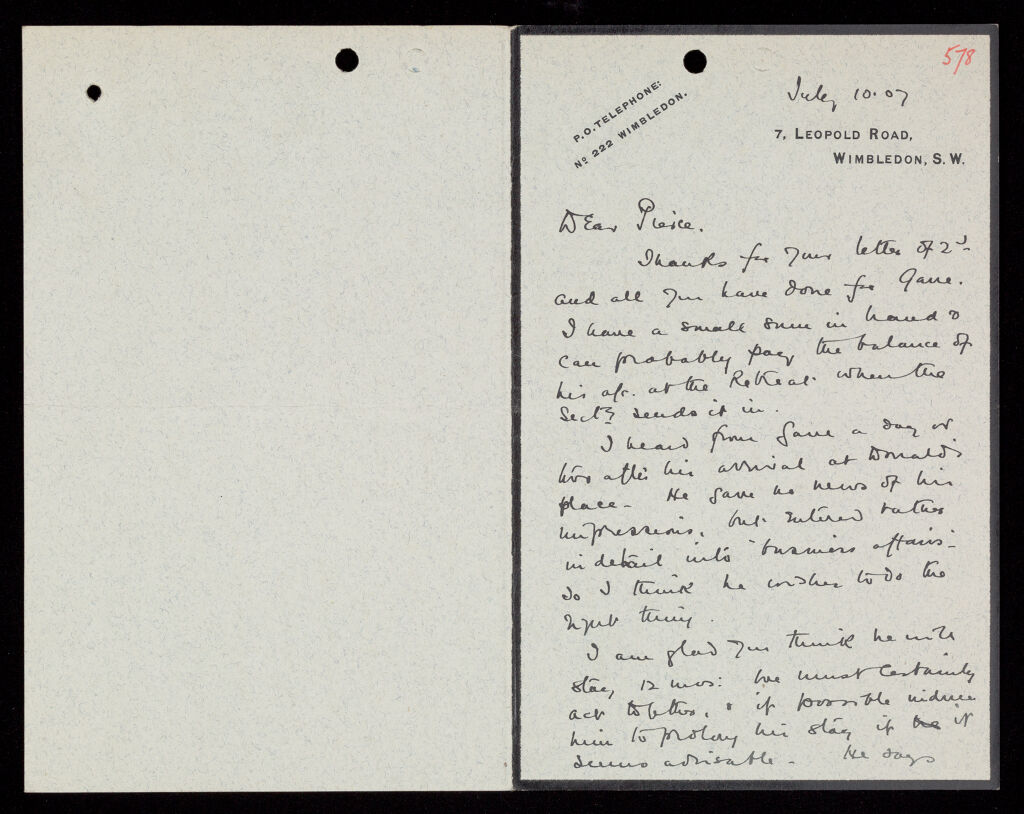 578
P.O. TELEPHONE:
Nº 222 WIMBLEDON.
July 10.07
7, LEOPOLD ROAD,
WIMBLEDON, S.W.
Dear Pierce.
Thanks for your letter of 2d
and all you have done for Gane.
I have a small sum in hand &
can probably pay the balance of
his a/c. at the Retreat when the
Secty sends it in.
I heard from Gane a day or
two after his arrival at Donald's
place - He gave no news of his
impressions, but entered rather
in detail into "business affairs" -
So I think he wishes to do the
right thing.
I am glad you think he will
stay 12 mos: We must certainly
act together, & if possible induce
him to prolong his stay if he it
seems advisable - He says